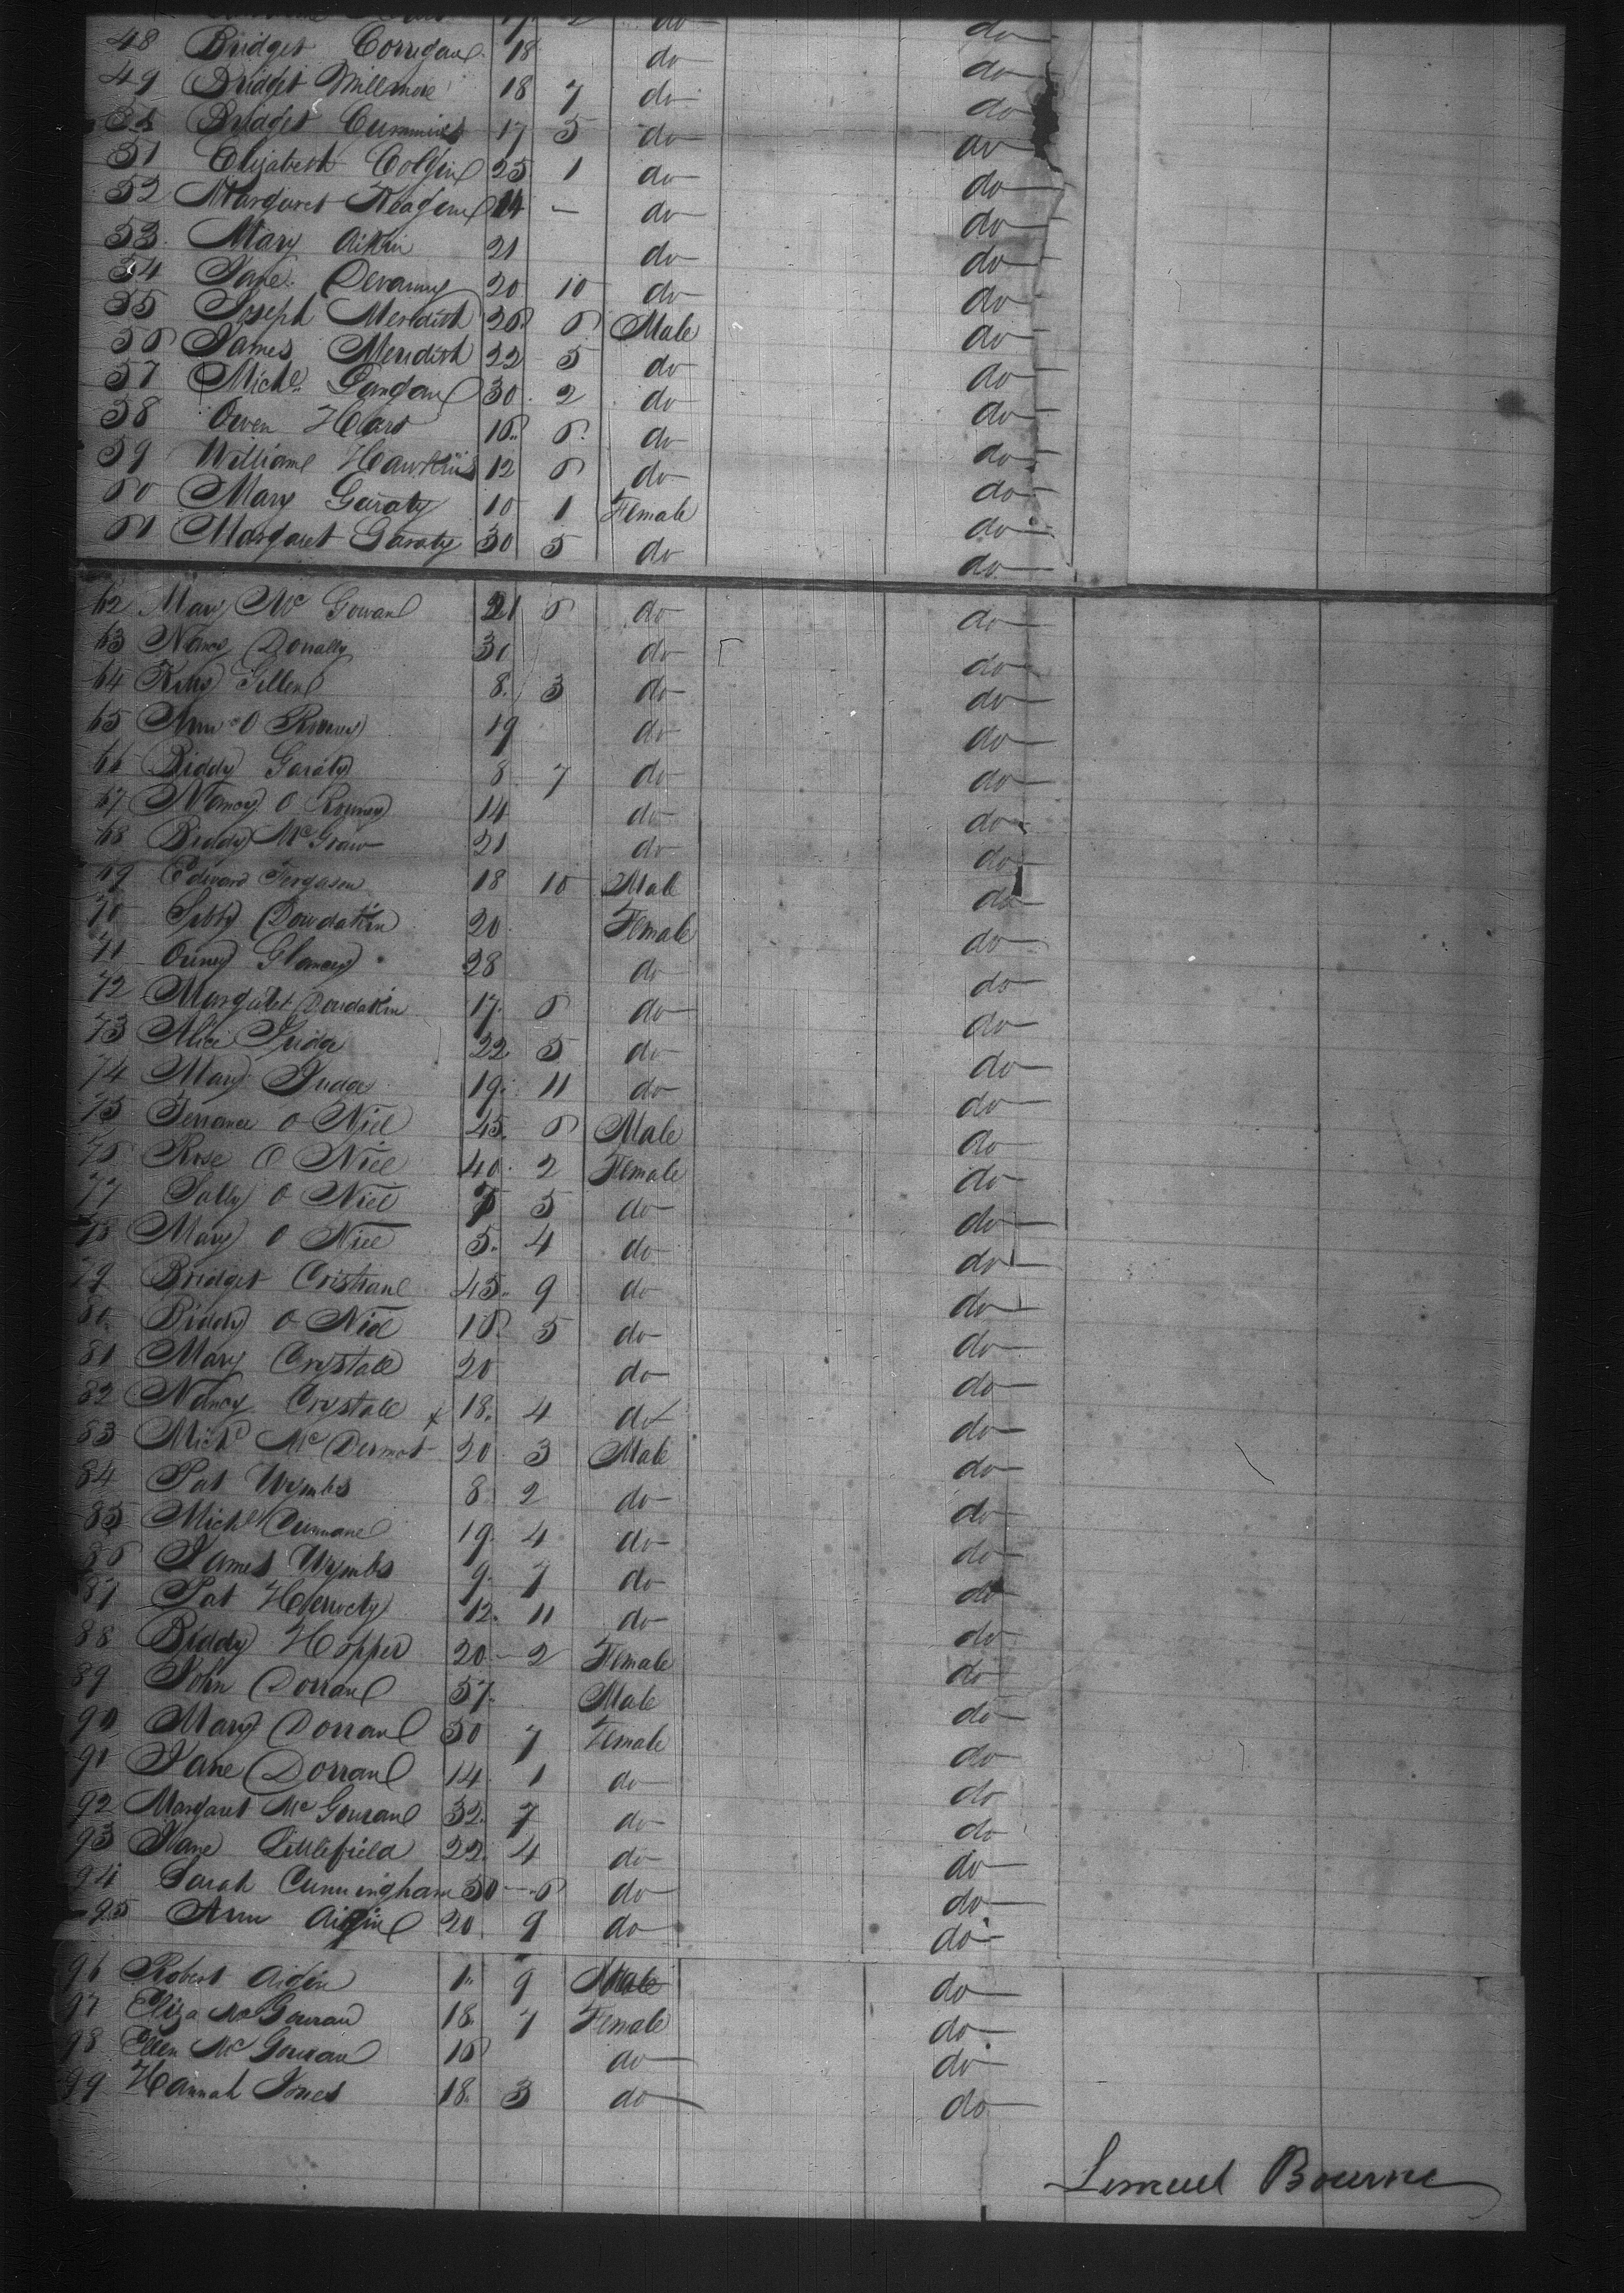 do do
48 Bridget Corrigan 18 do do
49 Bridget Millmore 18 7 do do
Bridget Cummins 17 5 do do
51 Elizabeth Colgin 25 1 do do
52 Margaret Reagin 14 — do do
53 Mary Aikin 21 do do
54 Jane Devanny 20 10 do do
55 Joseph Meredith 26 6 Male do
56 James Meridith 22 5 do do
57 Michl 30 2 do do
58 Owen Heart 16 6 do do
59 William Hawkins 12 6 do do
60 Mary Garaty 10 1 Female do
61 Margaret Garaty 30 5 do do
62 Mary Mc Gowan 21 6 do do
63 Nancy Donally 31 do do
64 Kitty Gillen 8 3 do do
65 Ann O 19 do do
66 Biddy Garaty 8 7 do do
67 Nancy O 14 do do
68 Biddy Mc Graw 21 do do
69 Edward Ferguson 18 10 Male do
70 Sibby Dowdakin 20 Female do
71 Glancy 28 do do
72 Margaret Dowdakin 17 6 do do
73 Alice Judge 22 5 do do
74 Mary Judge 19 11 do do
75 Terrance O Niel 45 6 Male do
76 Rose O Niel 40 2 Female do
77 Sally O Niel 7 5 do do
78 Mary O Niel 5 4 do do
79 Bridget Cristian 45 9 do do
80 Biddy O Niel 16 5 do do
81 Mary Crystall 20 do do
82 Nancy Crystall x 18 4 do do
83 Michl Mc Dermot 20 3 Male do
84 Pat Wymbs 8 2 do do
85 Michl Cunnane 19 4 do do
86 James Wymbs 9 7 do do
87 Pat 12 11 do do
88 Biddy Hopper 20 2 Female do
89 John Dorran 57 Male do
90 Mary Dorran 50 7 Female do
91 Jane Dorran 14 1 do do
92 Margaret Mc Gouran 32 7 do do
93 Jane Littlefield 22 4 do do
94 Sarah Cunningham 30 6 do do
95 Ann Aigin 20 9 do do
96 Robert Aigin 1 9 Male do
97 Eliza Mc Gouran 18 7 Female do
98 Ellen Mc Gouran 16 do do
99 Hannah Jones 18 3 do do
Lemuel Bourne